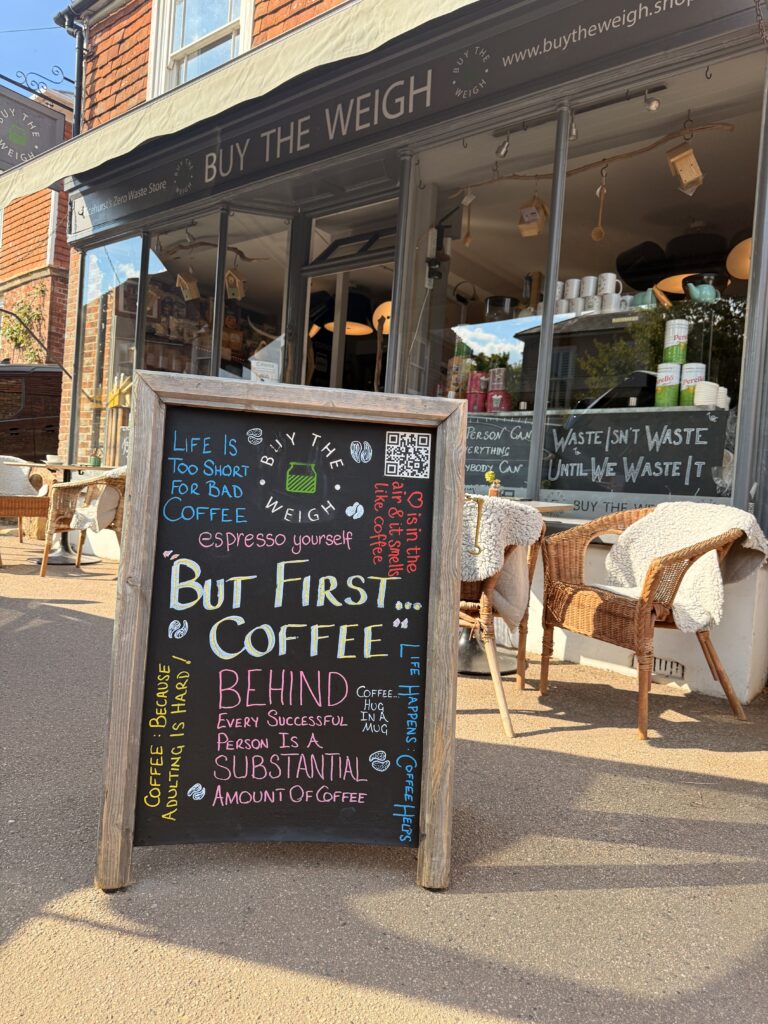 BUY THE WEIGH
BUY THE WEIGH
www.buytheweigh.shop
BUY THE WEIGH
Zero Waste Store
BUY THE WEIGH
PERSON CAN
EVERYTHING
CAN
WASTE ISN'T WASTE
UNTIL WE WASTE IT
BUY THE
LIFE IS
TOO SHORT
FOR BAD
COFFEE
BUY THE
WEIGH
♡ is in the
air & it smells
like coffee
espresso yourself
"BUT FIRST...
COFFEE"
COFFEE: BECAUSE
ADULTING IS HARD!
BEHIND
EVERY SUCCESSFUL
PERSON IS A
SUBSTANTIAL
AMOUNT OF COFFEE
COFFEE...
HUG
IN A
MUG
LIFE HAPPENS: COFFEE HELPS